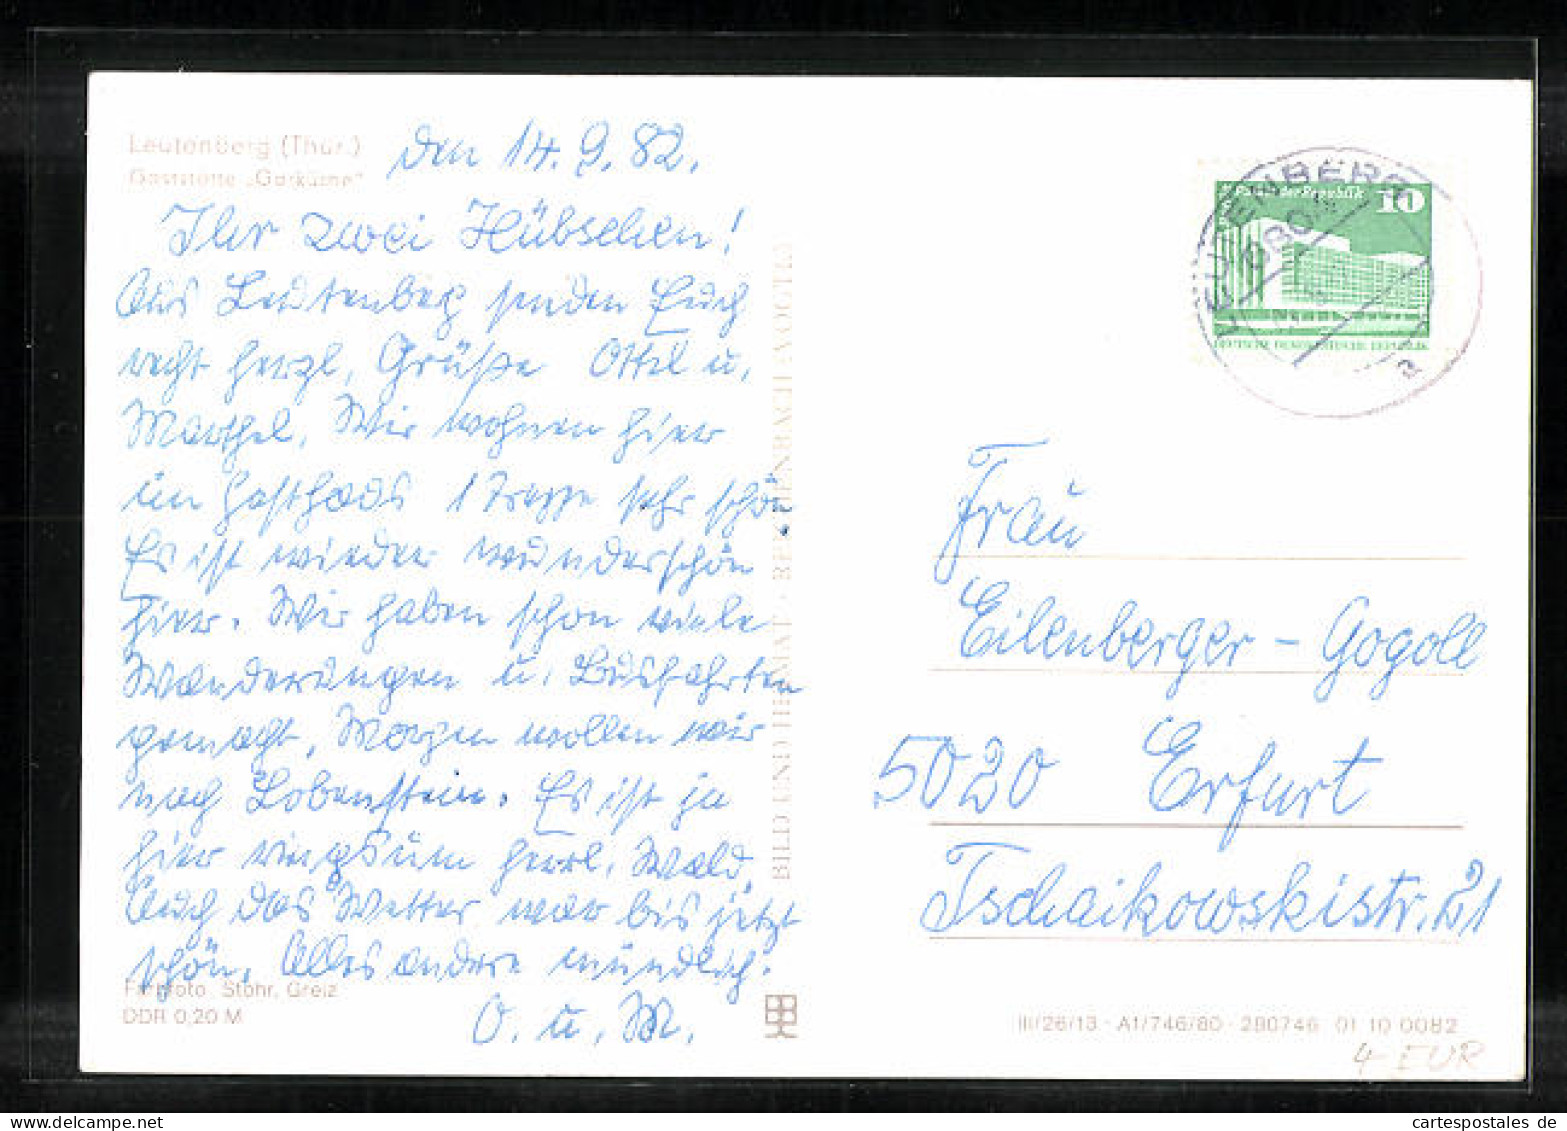 Leutenberg (Thür.)
Gaststätte „Garküche“
den 14. 9. 82.
Ihr zwei Hübschen!
Aus Leutenberg senden Euch
recht herzl. Grüße Ottel u.
Marthel. Wir wohnen hier
im Gasthaus 1 Treppe sehr schön
Es ist wieder wunderschön
hier. Wir haben schon viele
Wanderungen u. Busfahrten
gemacht. Morgen wollen wir
nach Lobenstein. Es ist ja
hier ringsum herrl. Wald.
Auch das Wetter war bis jetzt
schön. Alles andere mündlich.
O. u. M.
Farbfoto: Stöhr, Greiz
DDR 0,20 M
BILD UND HEIMAT · REICHENBACH (VOGTL)
LEUTENBERG
a
Palast der Republik 10
DEUTSCHE DEMOKRATISCHE REPUBLIK
Frau
Eilenberger - Gogoll
5020 Erfurt
Tschaikowskistr. 21
III/26/13 · A1/746/80 · 280746 01 10 0082
4-EUR
cartespostales de